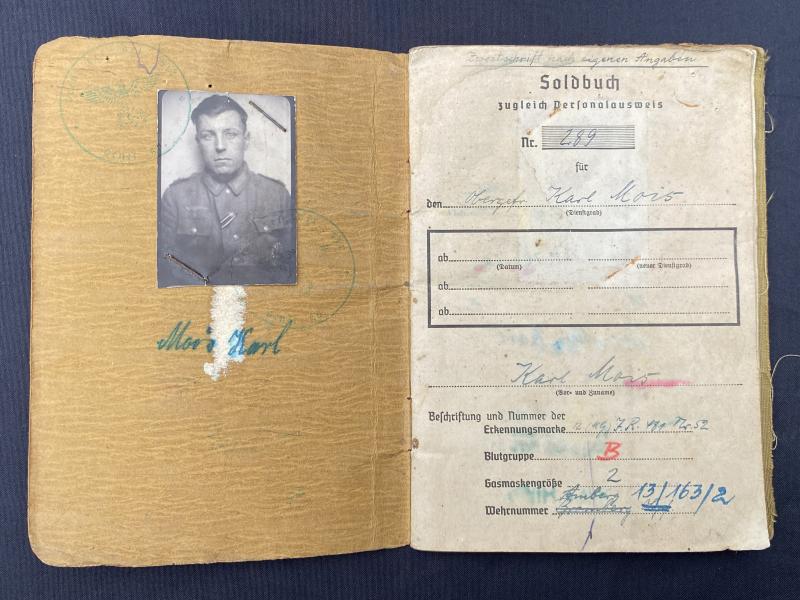 Mois Karl
Zweitschrift nach eigenen Angaben
Soldbuch
zugleich Personalausweis
Nr. 289
für
den Obergefr. Karl Mois
(Dienstgrad)
ab
(Datum) (neuer Dienstgrad)
ab
ab
Karl Mois
(Vor- und Zuname)
Beschriftung und Nummer der
Erkennungsmarke J.R. Nr. 52
Blutgruppe B
Gasmaskengröße 2
Amberg 13/163/2
Wehrnummer